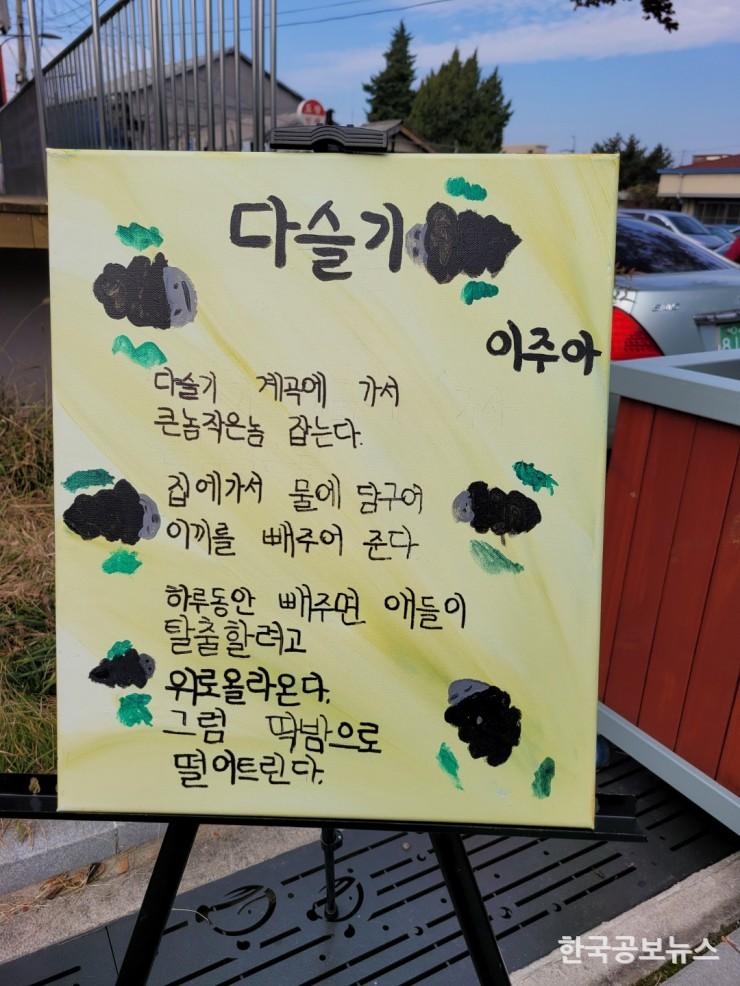 다슬기
이주아
다슬기 계곡에 가서
큰놈작은놈 잡는다.
집에가서 물에 담구어
이끼를 빼주어 준다
하루동안 빼주면 애들이
탈출할려고
위로올라온다.
그럼 딱밤으로
떨어트린다.
한국공보뉴스